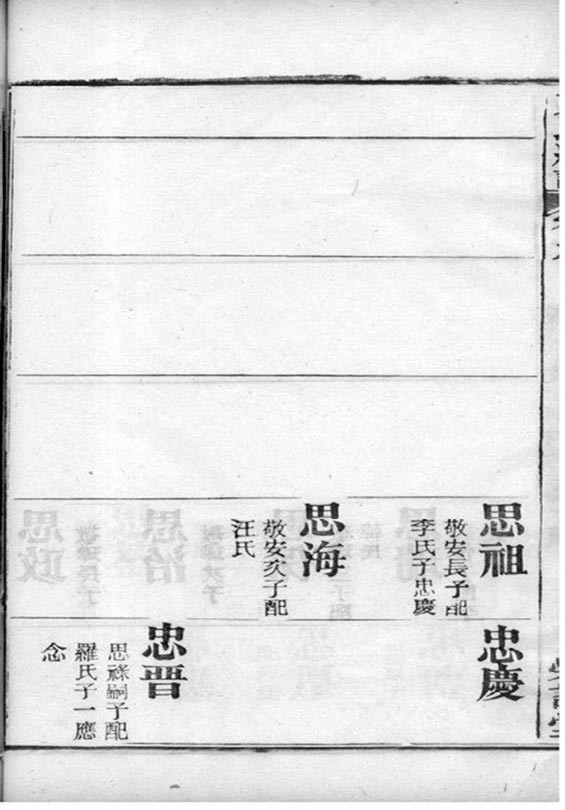 思祖
敬安長子配
李氏子忠慶
思海
敬安次子配
汪氏
忠慶
忠晋
思祿嗣子配
羅氏子一應
念